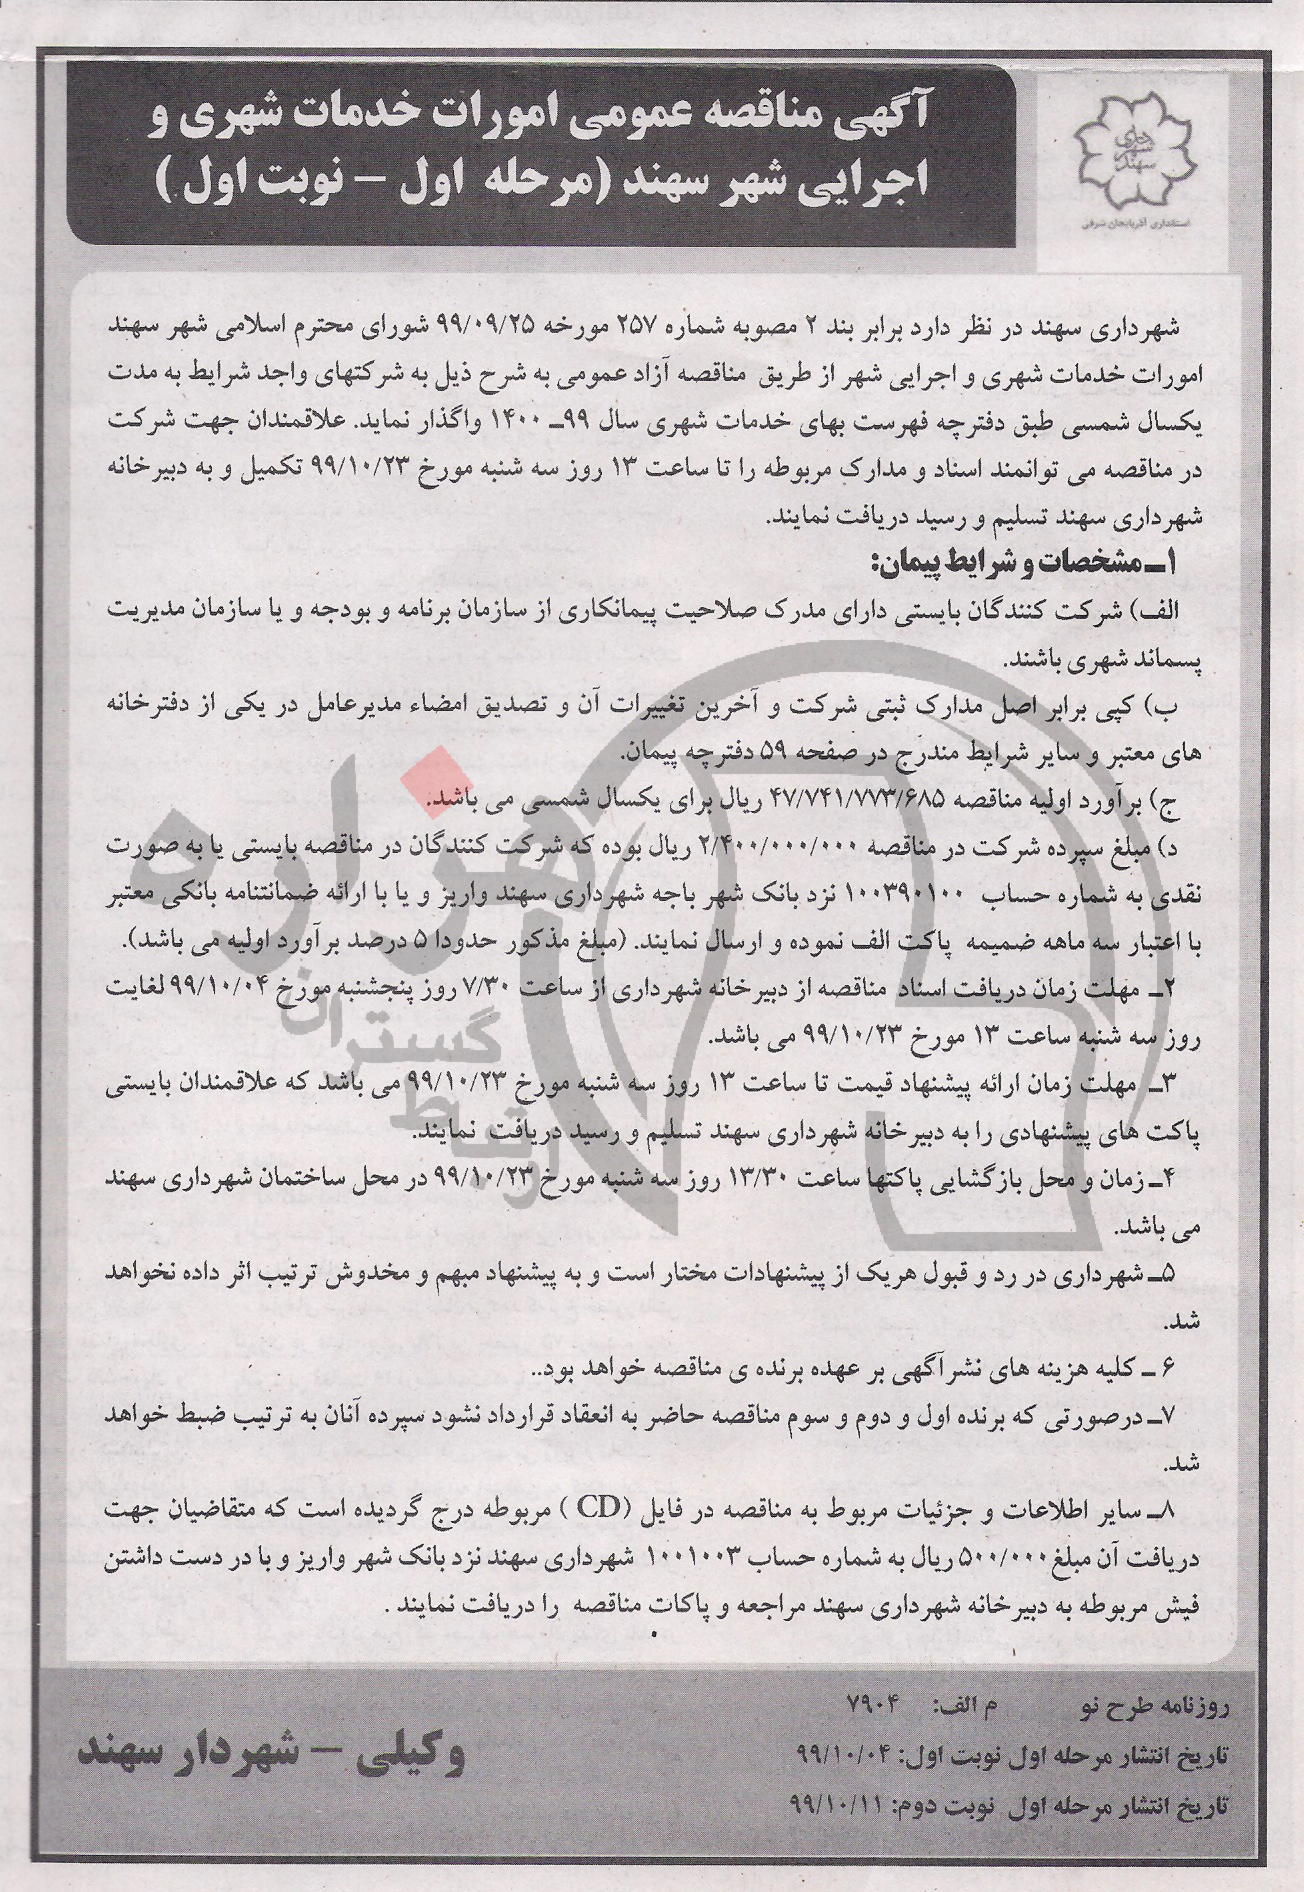 آگهی مناقصه عمومی امورات خدمات شهری و
اجرایی شهر سهند (مرحله اول – نوبت اول)
شهرداری سهند
استانداری آذربایجان شرقی
شهرداری سهند در نظر دارد برابر بند ۲ مصوبه شماره ۲۵۷ مورخه ۹۹/۰۹/۲۵ شورای محترم اسلامی شهر سهند
امورات خدمات شهری و اجرایی شهر از طریق مناقصه آزاد عمومی به شرح ذیل به شرکتهای واجد شرایط به مدت
یکسال شمسی طبق دفترچه فهرست بهای خدمات شهری سال ۹۹ـ ۱۴۰۰ واگذار نماید. علاقمندان جهت شرکت
در مناقصه می توانمند اسناد و مدارک مربوطه را تا ساعت ۱۳ روز سه شنبه مورخ ۹۹/۱۰/۲۳ تکمیل و به دبیرخانه
شهرداری سهند تسلیم و رسید دریافت نمایند.
۱ـ مشخصات و شرایط پیمان:
الف) شرکت کنندگان بایستی دارای مدرک صلاحیت پیمانکاری از سازمان برنامه و بودجه و یا سازمان مدیریت
پسماند شهری باشند.
ب) کپی برابر اصل مدارک ثبتی شرکت و آخرین تغییرات آن و تصدیق امضاء مدیرعامل در یکی از دفترخانه
های معتبر و سایر شرایط مندرج در صفحه ۵۹ دفترچه پیمان.
ج) برآورد اولیه مناقصه ۴۷/۷۴۱/۷۷۳/۶۸۵ ریال برای یکسال شمسی می باشد.
د) مبلغ سپرده شرکت در مناقصه ۲/۴۰۰/۰۰۰/۰۰۰ ریال بوده که شرکت کنندگان در مناقصه بایستی یا به صورت
نقدی به شماره حساب ۱۰۰۳۹۰۱۰۰ نزد بانک شهر باجه شهرداری سهند واریز و یا با ارائه ضمانتنامه بانکی معتبر
با اعتبار سه ماهه ضمیمه پاکت الف نموده و ارسال نمایند. (مبلغ مذکور حدودا ۵ درصد برآورد اولیه می باشد).
۲ـ مهلت زمان دریافت اسناد مناقصه از دبیرخانه شهرداری از ساعت ۷/۳۰ روز پنجشنبه مورخ ۹۹/۱۰/۰۴ لغایت
روز سه شنبه ساعت ۱۳ مورخ ۹۹/۱۰/۲۳ می باشد.
۳ـ مهلت زمان ارائه پیشنهاد قیمت تا ساعت ۱۳ روز سه شنبه مورخ ۹۹/۱۰/۲۳ می باشد که علاقمندان بایستی
پاکت های پیشنهادی را به دبیرخانه شهرداری سهند تسلیم و رسید دریافت نمایند.
۴ـ زمان و محل بازگشایی پاکتها ساعت ۱۳/۳۰ روز سه شنبه مورخ ۹۹/۱۰/۲۳ در محل ساختمان شهرداری سهند
می باشد.
۵ـ شهرداری در رد و قبول هریک از پیشنهادات مختار است و به پیشنهاد مبهم و مخدوش ترتیب اثر داده نخواهد
شد.
۶ ـ کلیه هزینه های نشرآگهی بر عهده برنده ی مناقصه خواهد بود..
۷ـ درصورتی که برنده اول و دوم و سوم مناقصه حاضر به انعقاد قرارداد نشود سپرده آنان به ترتیب ضبط خواهد
شد.
۸ـ سایر اطلاعات و جزئیات مربوط به مناقصه در فایل (CD) مربوطه درج گردیده است که متقاضیان جهت
دریافت آن مبلغ ۵۰۰/۰۰۰ ریال به شماره حساب ۱۰۰۱۰۰۳ شهرداری سهند نزد بانک شهر واریز و با در دست داشتن
فیش مربوطه به دبیرخانه شهرداری سهند مراجعه و پاکات مناقصه را دریافت نمایند .
روزنامه طرح نو م الف: ۷۹۰۴
تاریخ انتشار مرحله اول نوبت اول: ۹۹/۱۰/۰۴
تاریخ انتشار مرحله اول نوبت دوم: ۹۹/۱۰/۱۱
وکیلی – شهردار سهند
هزاره
گستران